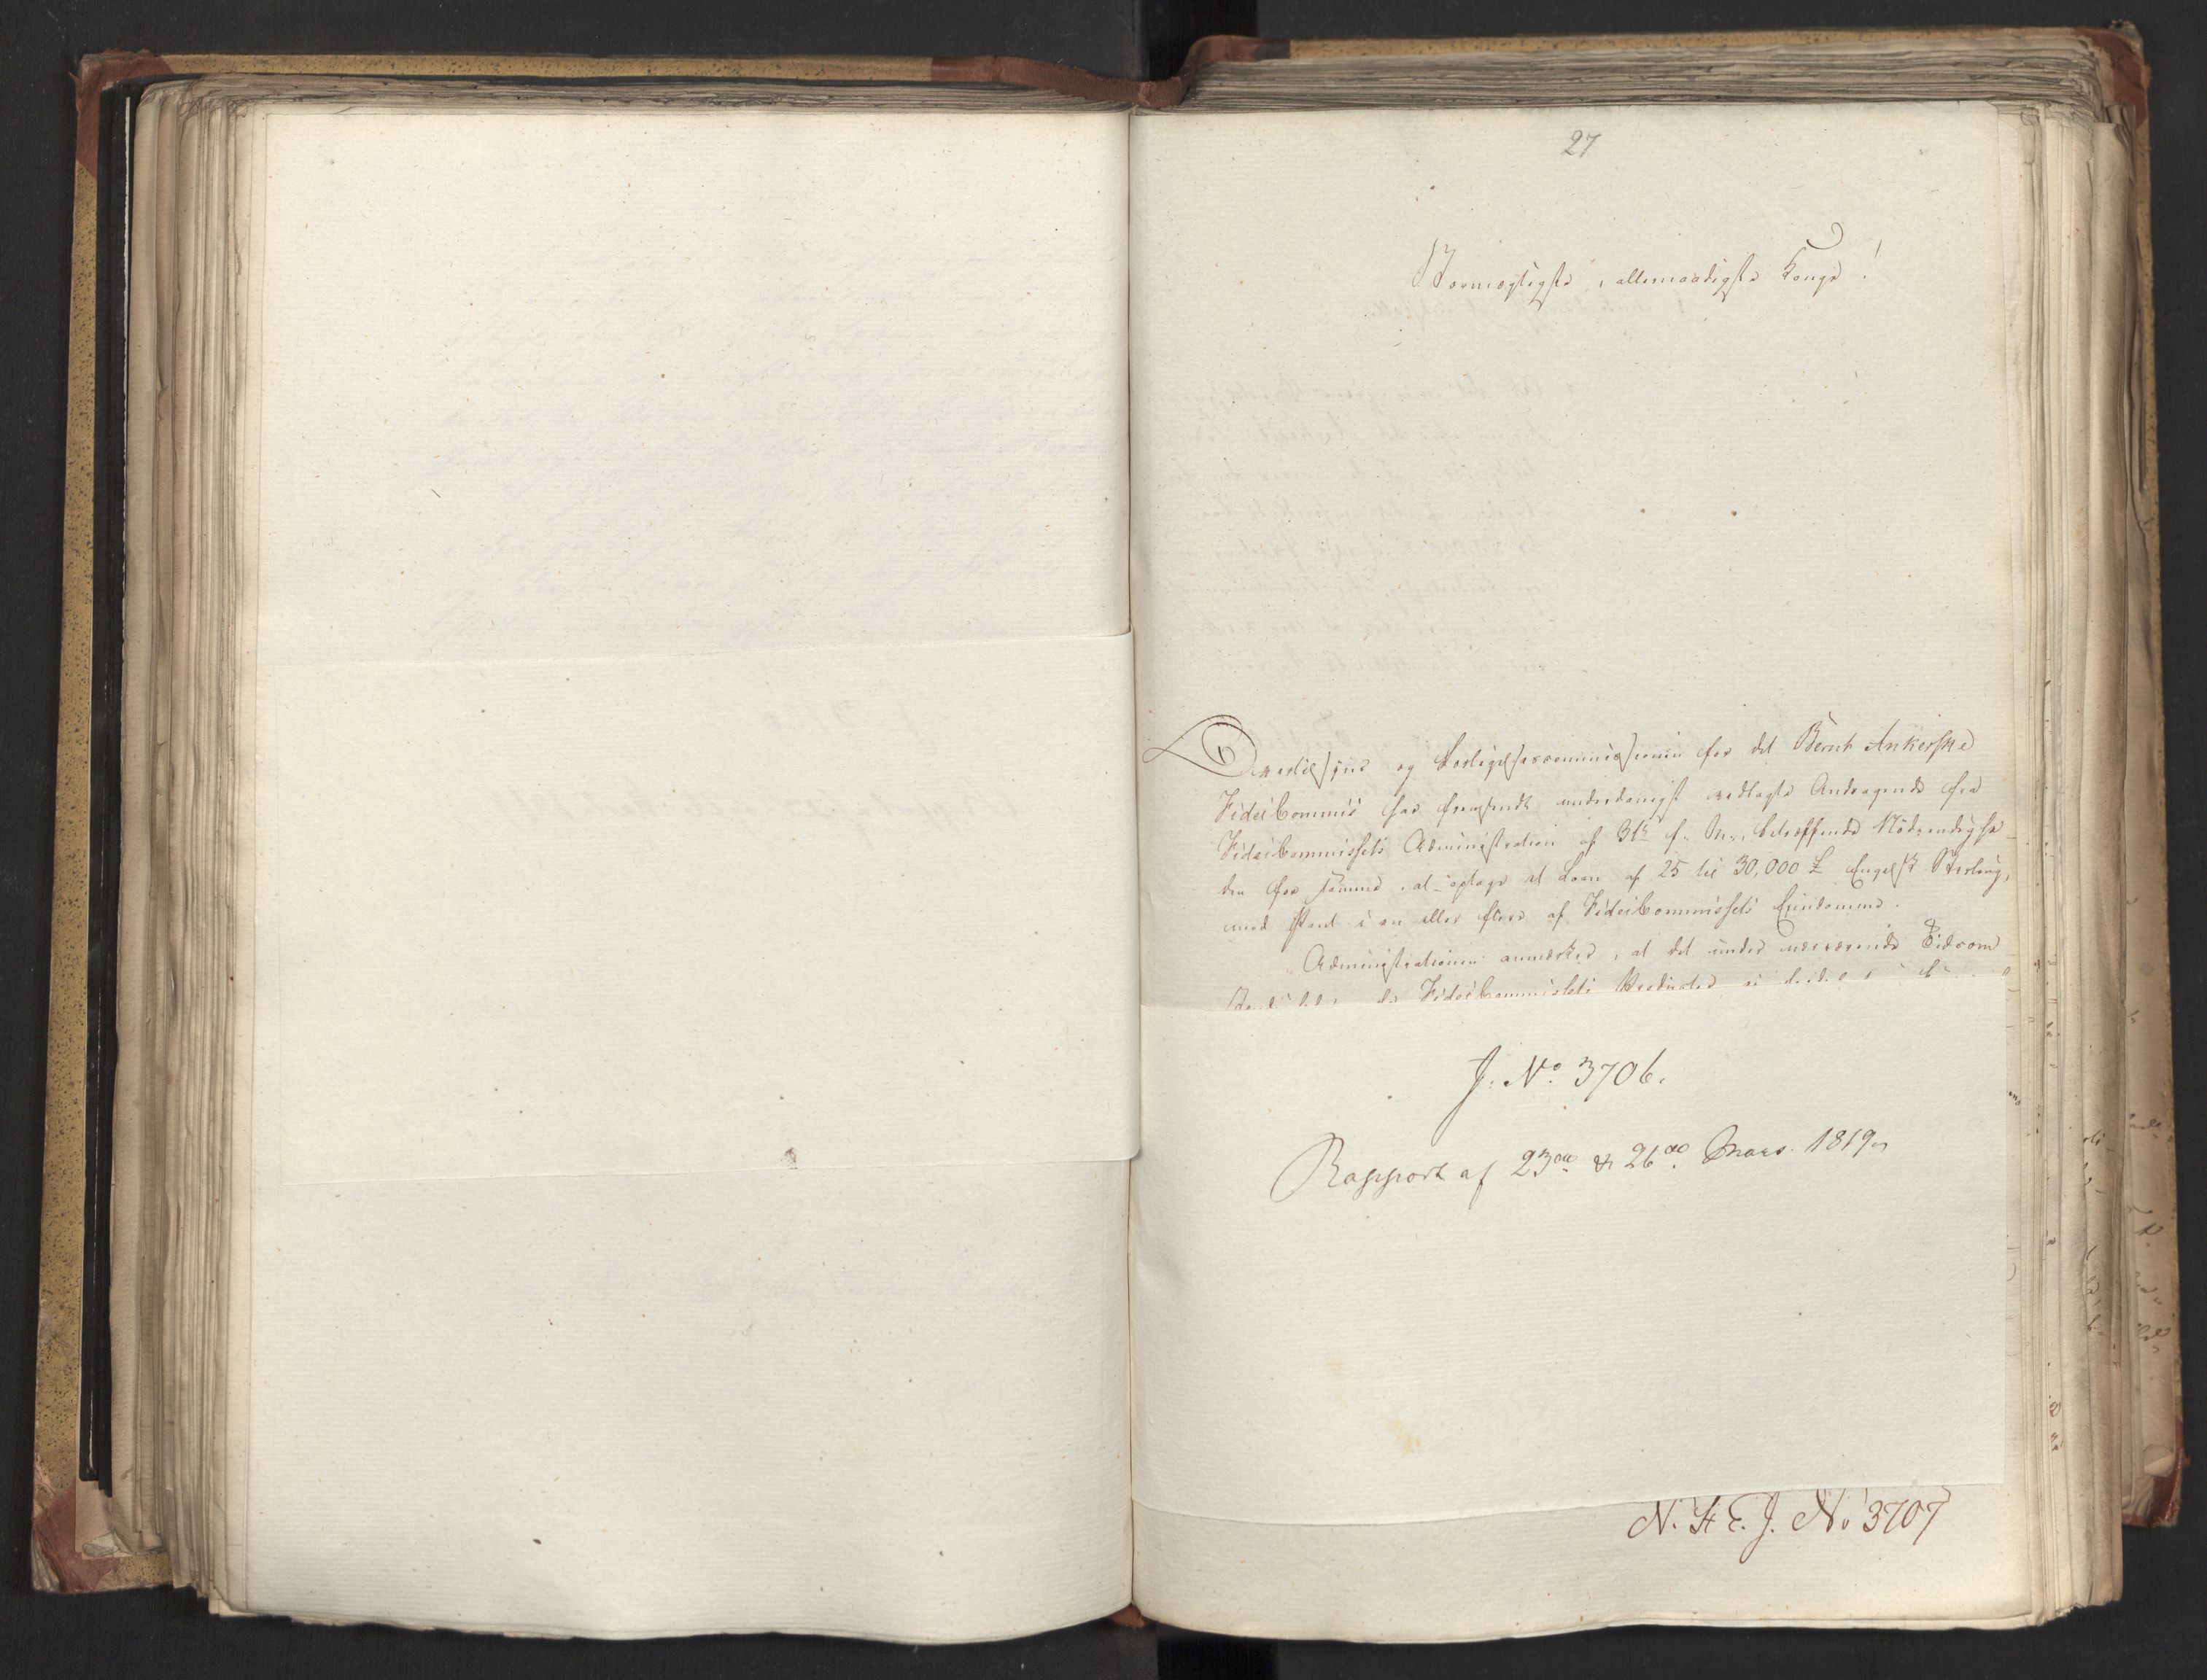 27
Stormægtigste, allernaadigste Konge!
Bestyrelses og Forligelsescommissionen for det Bernt Ankerske
Fideicommis har fremsendt underdanigst vedlagte Andragende fra
Fideicommissets Administration af 3die f. M., betreffende Nödvendighe-
den for samme, at optage et Laan af 25 til 30,000 £ Engelsk Sterling,
mod Pant i en eller flere af Fideicommissets Eiendomme.
Administrationen anmærker, at det under nærværende Tidsom-
Fideicommissets Producter
J. No. 3706.
Rapport af 23de & 26de Mars. 1819
N. St E. J. No 3707